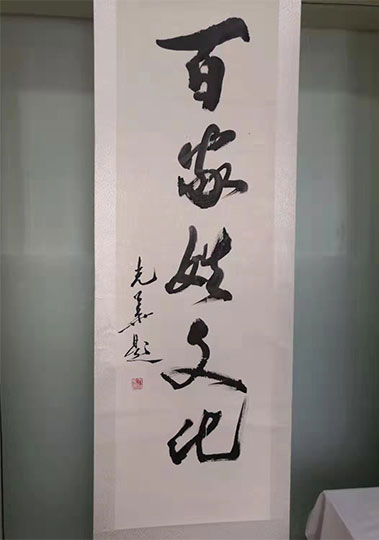 百家姓文化
光华题